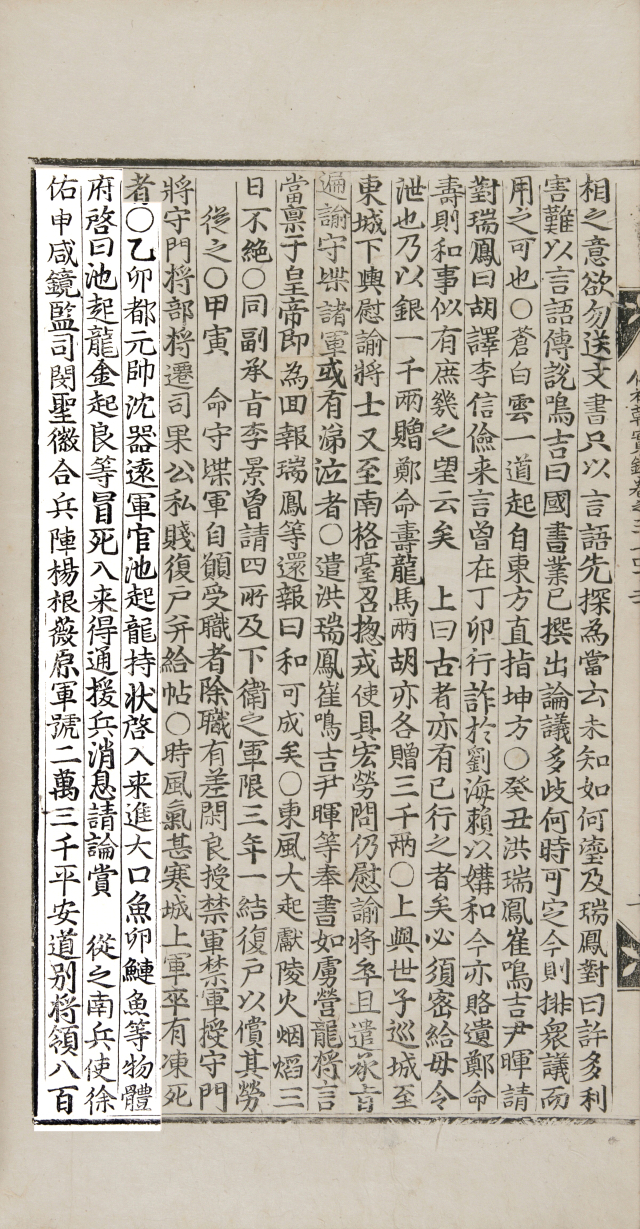 相之意欲勿送文書只以言語先探為當云未知如何瀅及瑞鳳對曰許多利
害難以言語傳說鳴吉曰國書業已撰出論議多歧何時可定今則排衆議而
用之可也○蒼白雲一道起自東方直指坤方○癸丑洪瑞鳳崔鳴吉尹暉請
對瑞鳳曰胡譯李信儉来言曾在丁卯行詐於劉海賴以媾和今亦賂遺鄭命
壽則和事似有庶幾之望云矣 上曰古者亦有已行之者矣必須密給毋令
泄也乃以銀一千兩贈鄭命壽龍馬兩胡亦各贈三千兩○上與世子巡城至
東城下輿慰諭將士又至南格臺召摠戎使具宏勞問仍慰諭將卒且遣承旨
遍諭守堞諸軍或有涕泣者○遣洪瑞鳳崔鳴吉尹暉等奉書如虜營龍将言
當禀于皇帝即為回報瑞鳳等還報曰和可成矣○東風大起獻陵火烟熖三
日不絶○同副承旨李景曾請四所及下衛之軍限三年一結復户以償其勞
從之○甲寅 命守堞軍自願受職者除職有差閑良授禁軍禁軍授守門
將守門将部将遷司果公私賤復户并給帖○時風氣甚寒城上軍卒有凍死
者○乙卯都元帥沈器遠軍官池起龍持狀啓入来進大口魚卵鰱魚等物體
府啓曰池起龍金起良等冒死入来得通援兵消息請論賞 從之南兵使徐
佑申咸鏡監司閔聖徽合兵陣楊根薇原軍號二萬三千平安道別将領八百